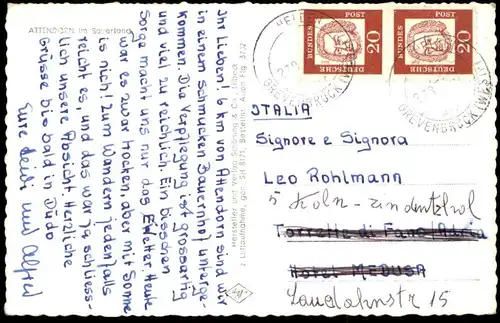 ATTENDORN im Sauerland
Ihr Lieben! 6 km von Attendorn sind wir
in einem schmucken Bauernhof unterge-
kommen. Die Verpflegung ist grossartig
und viel zu reichlich. Ein bisschen
Sorge macht uns nur das Wetter. Heute
war es zwar trocken, aber mit Sonne
is nich! Zum Wandern jedenfalls
reicht es, und das war ja schliess-
lich unsere Absicht. Herzliche
Grüsse bis bald in Düdo
Eure und Alfred
Hersteller und Verlag Schöning & Co., Lübeck
Luftaufnahme, gen. SH 8171, Bestellnr. Auen Flg. 3732
DEUTSCHE
BUNDES
POST
20
DEUTSCHE
BUNDES
POST
20
GREVENBRÜCK (WESTF)
ITALIA
Signore e Signora
Leo Rohlmann
5 Köln-
Torrette di Fano/Adria
Hotel MEDUSA
15